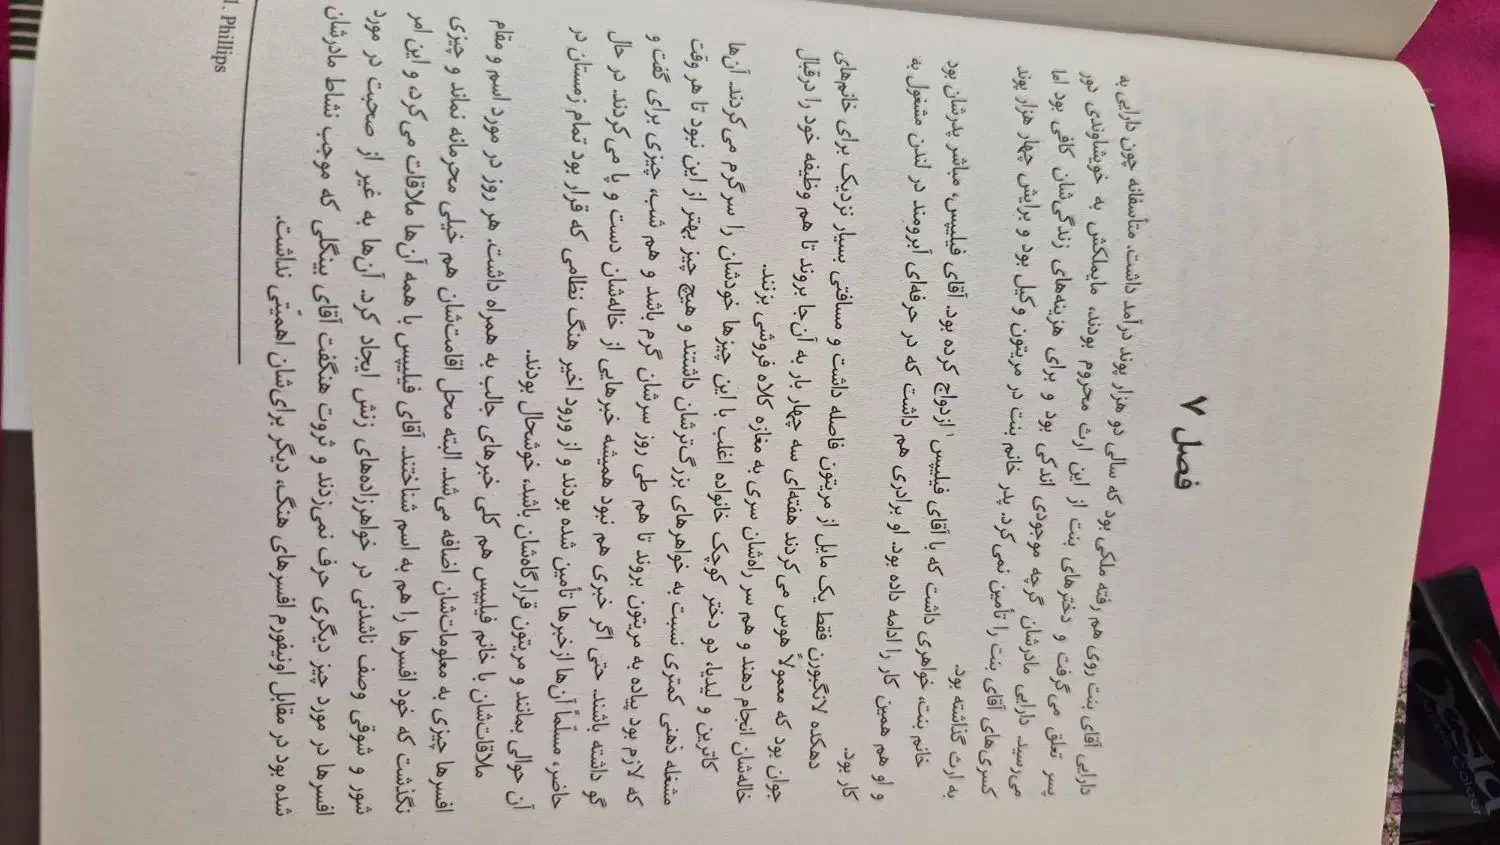 فصل ۷
دارایی آقای بنت روی هم رفته ملکی بود که سالی دو هزار پوند درآمد داشت. متأسفانه چون دارایی به
پسر تعلق می‌گرفت و دخترهای بنت از این ارث محروم بودند، مایملکش به خویشاوندی دور
می‌رسید. دارایی مادرشان گرچه موجودی اندکی بود و برای هزینه‌های زندگی‌شان کافی بود اما
کسری‌های آقای بنت را تأمین نمی‌کرد. پدر خانم بنت در مریتون وکیل بود و برایش چهار هزار پوند
به ارث گذاشته بود.
خانم بنت، خواهری داشت که با آقای فیلیپس۱ ازدواج کرده بود. آقای فیلیپس، مباشر پدرشان بود
و او هم همین کار را ادامه داده بود. او برادری هم داشت که در حرفه‌ای آبرومند در لندن مشغول به
کار بود.
دهکده لانگبورن فقط یک مایل از مریتون فاصله داشت و مسافتی بسیار نزدیک برای خانم‌های
جوان بود که معمولاً هوس می‌کردند هفته‌ای سه چهار بار به آن‌جا بروند تا هم وظیفه خود را درقبال
خاله‌شان انجام دهند و هم سر راه‌شان سری به مغازه کلاه فروشی بزنند.
کاترین و لیدیا، دو دختر کوچک خانواده اغلب با این چیزها خودشان را سرگرم می‌کردند. آن‌ها
مشغله ذهنی کمتری نسبت به خواهرهای بزرگ‌ترشان داشتند و هیچ چیز بهتر از این نبود تا هر وقت
که لازم بود پیاده به مریتون بروند تا هم طی روز سرشان گرم باشد و هم شب، چیزی برای گفت و
گو داشته باشند. حتی اگر خبری هم نبود همیشه خبرهایی از خاله‌شان دست و پا می‌کردند. در حال
حاضر، مسلّماً آن‌ها ازخبرها تأمین شده بودند و از ورود اخیر هنگ نظامی که قرار بود تمام زمستان در
آن حوالی بمانند و مریتون قرارگاه‌شان باشد، خوشحال بودند.
ملاقات‌شان با خانم فیلیپس هم کلی خبرهای جالب به همراه داشت. هر روز در مورد اسم و مقام
افسرها چیزی به معلومات‌شان اضافه می‌شد. البته محل اقامت‌شان هم خیلی محرمانه نماند و چیزی
نگذشت که خود افسرها را هم به اسم شناختند. آقای فیلیپس با همه آن‌ها ملاقات می‌کرد، و این امر
شور و شوقی وصف ناشدنی در خواهرزاده‌های زنش ایجاد کرد. آن‌ها به غیر از صحبت در مورد
افسرها در مورد چیز دیگری حرف نمی‌زدند و ثروت هنگفت آقای بینگلی که موجب نشاط مادرشان
شده بود در مقابل اونیفورم افسرهای هنگ، دیگر برای‌شان اهمیّتی نداشت.
1. Phillips